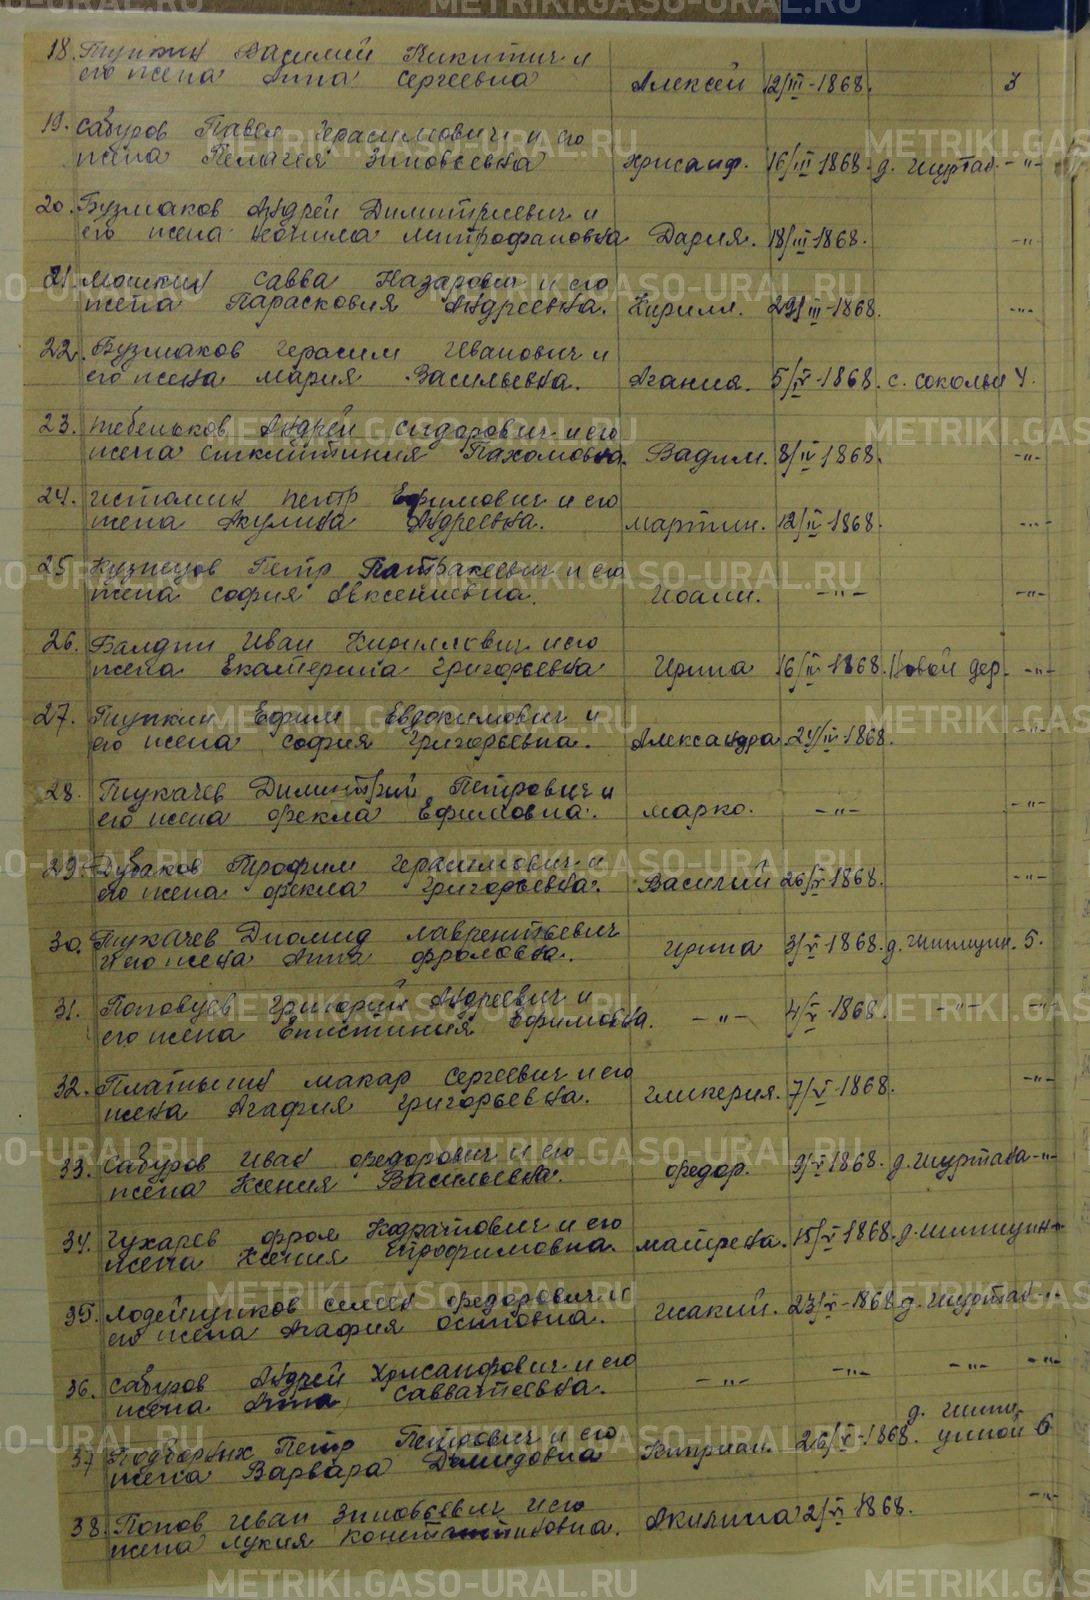 18. Тупкин Василий Никитич и его жена Анна Сергеевна Алексей 12/III-1868. 3
19. Сабуров Павел Герасимович и его жена Пелагея Зиновьевна Хрисанф. 16/III 1868. д. Шуртан. -"-
20. Бузмаков Андрей Димитриевич и его жена Неонила Митрофановна Дария. 18/III-1868. -"-
21. Мошкин Савва Назарович и его жена Парасковия Андреевна. Кирилл. 29/III-1868. -"-
22. Бузмаков Герасим Иванович и его жена Мария Васильевна. Агания. 5/IV-1868. с. Соколы 4.
23. Тебеньков Андрей Сидорович и его жена Синклитиния Пахомовна. Вадим. 8/IV 1868. -"-
24. Истомин Петр Ефимович и его жена Акулина Андреевна. Мартин. 12/IV-1868. -"-
25. Кузнецов Петр Патракеевич и его жена София Авксентиевна. Иоанн. -"- -"-
26. Балдин Иван Кириллович и его жена Екатерина Григорьевна Ирина 16/IV 1868. Новой дер. -"-
27. Тупкин Ефим Евдокимович и его жена София Григорьевна. Александра. 24/IV-1868. -"-
28. Тукачев Димитрий Петрович и его жена Фекла Ефимовна. Марко. -"- -"-
29. Дубаков Трофим Герасимович и его жена Фекла Григорьевна. Василий 26/IV-1868. -"-
30. Тукачев Диомид Лаврентьевич и его жена Анна Фроловна. Ирина 3/V 1868. д. Шишкин. 5.
31. Поповцев Григорий Андреевич и его жена Епистиния Ефимовна. -"- 4/V-1868. -"- -"-
32. Платынин Макар Сергеевич и его жена Агафия Григорьевна. Гликерия. 7/V-1868. -"-
33. Сабуров Иван Федорович и его жена Ксения Васильевна. Федор. 9/V-1868. д. Шуртана -"-
34. Чухарев Фрол Кодратович и его жена Ксения Трофимовна. Матрена. 15/V-1868. -"-
35. Лодейщиков Семен Федорович и его жена Агафия Осиповна. Исакий. 23/V-1868 д. Шуртан -"-
36. Сабуров Андрей Хрисанфович и его жена Анна Савватеевна. -"- -"- -"- -"-
37 Подборных Петр Петрович и его жена Варвара Демидовна Киприан. 26/V-1868. 6
38. Попов Иван Зиновьевич и его жена Лукия Константиновна. Акилина 2/VI 1868. -"-
METRIKI.GASO-URAL.RU